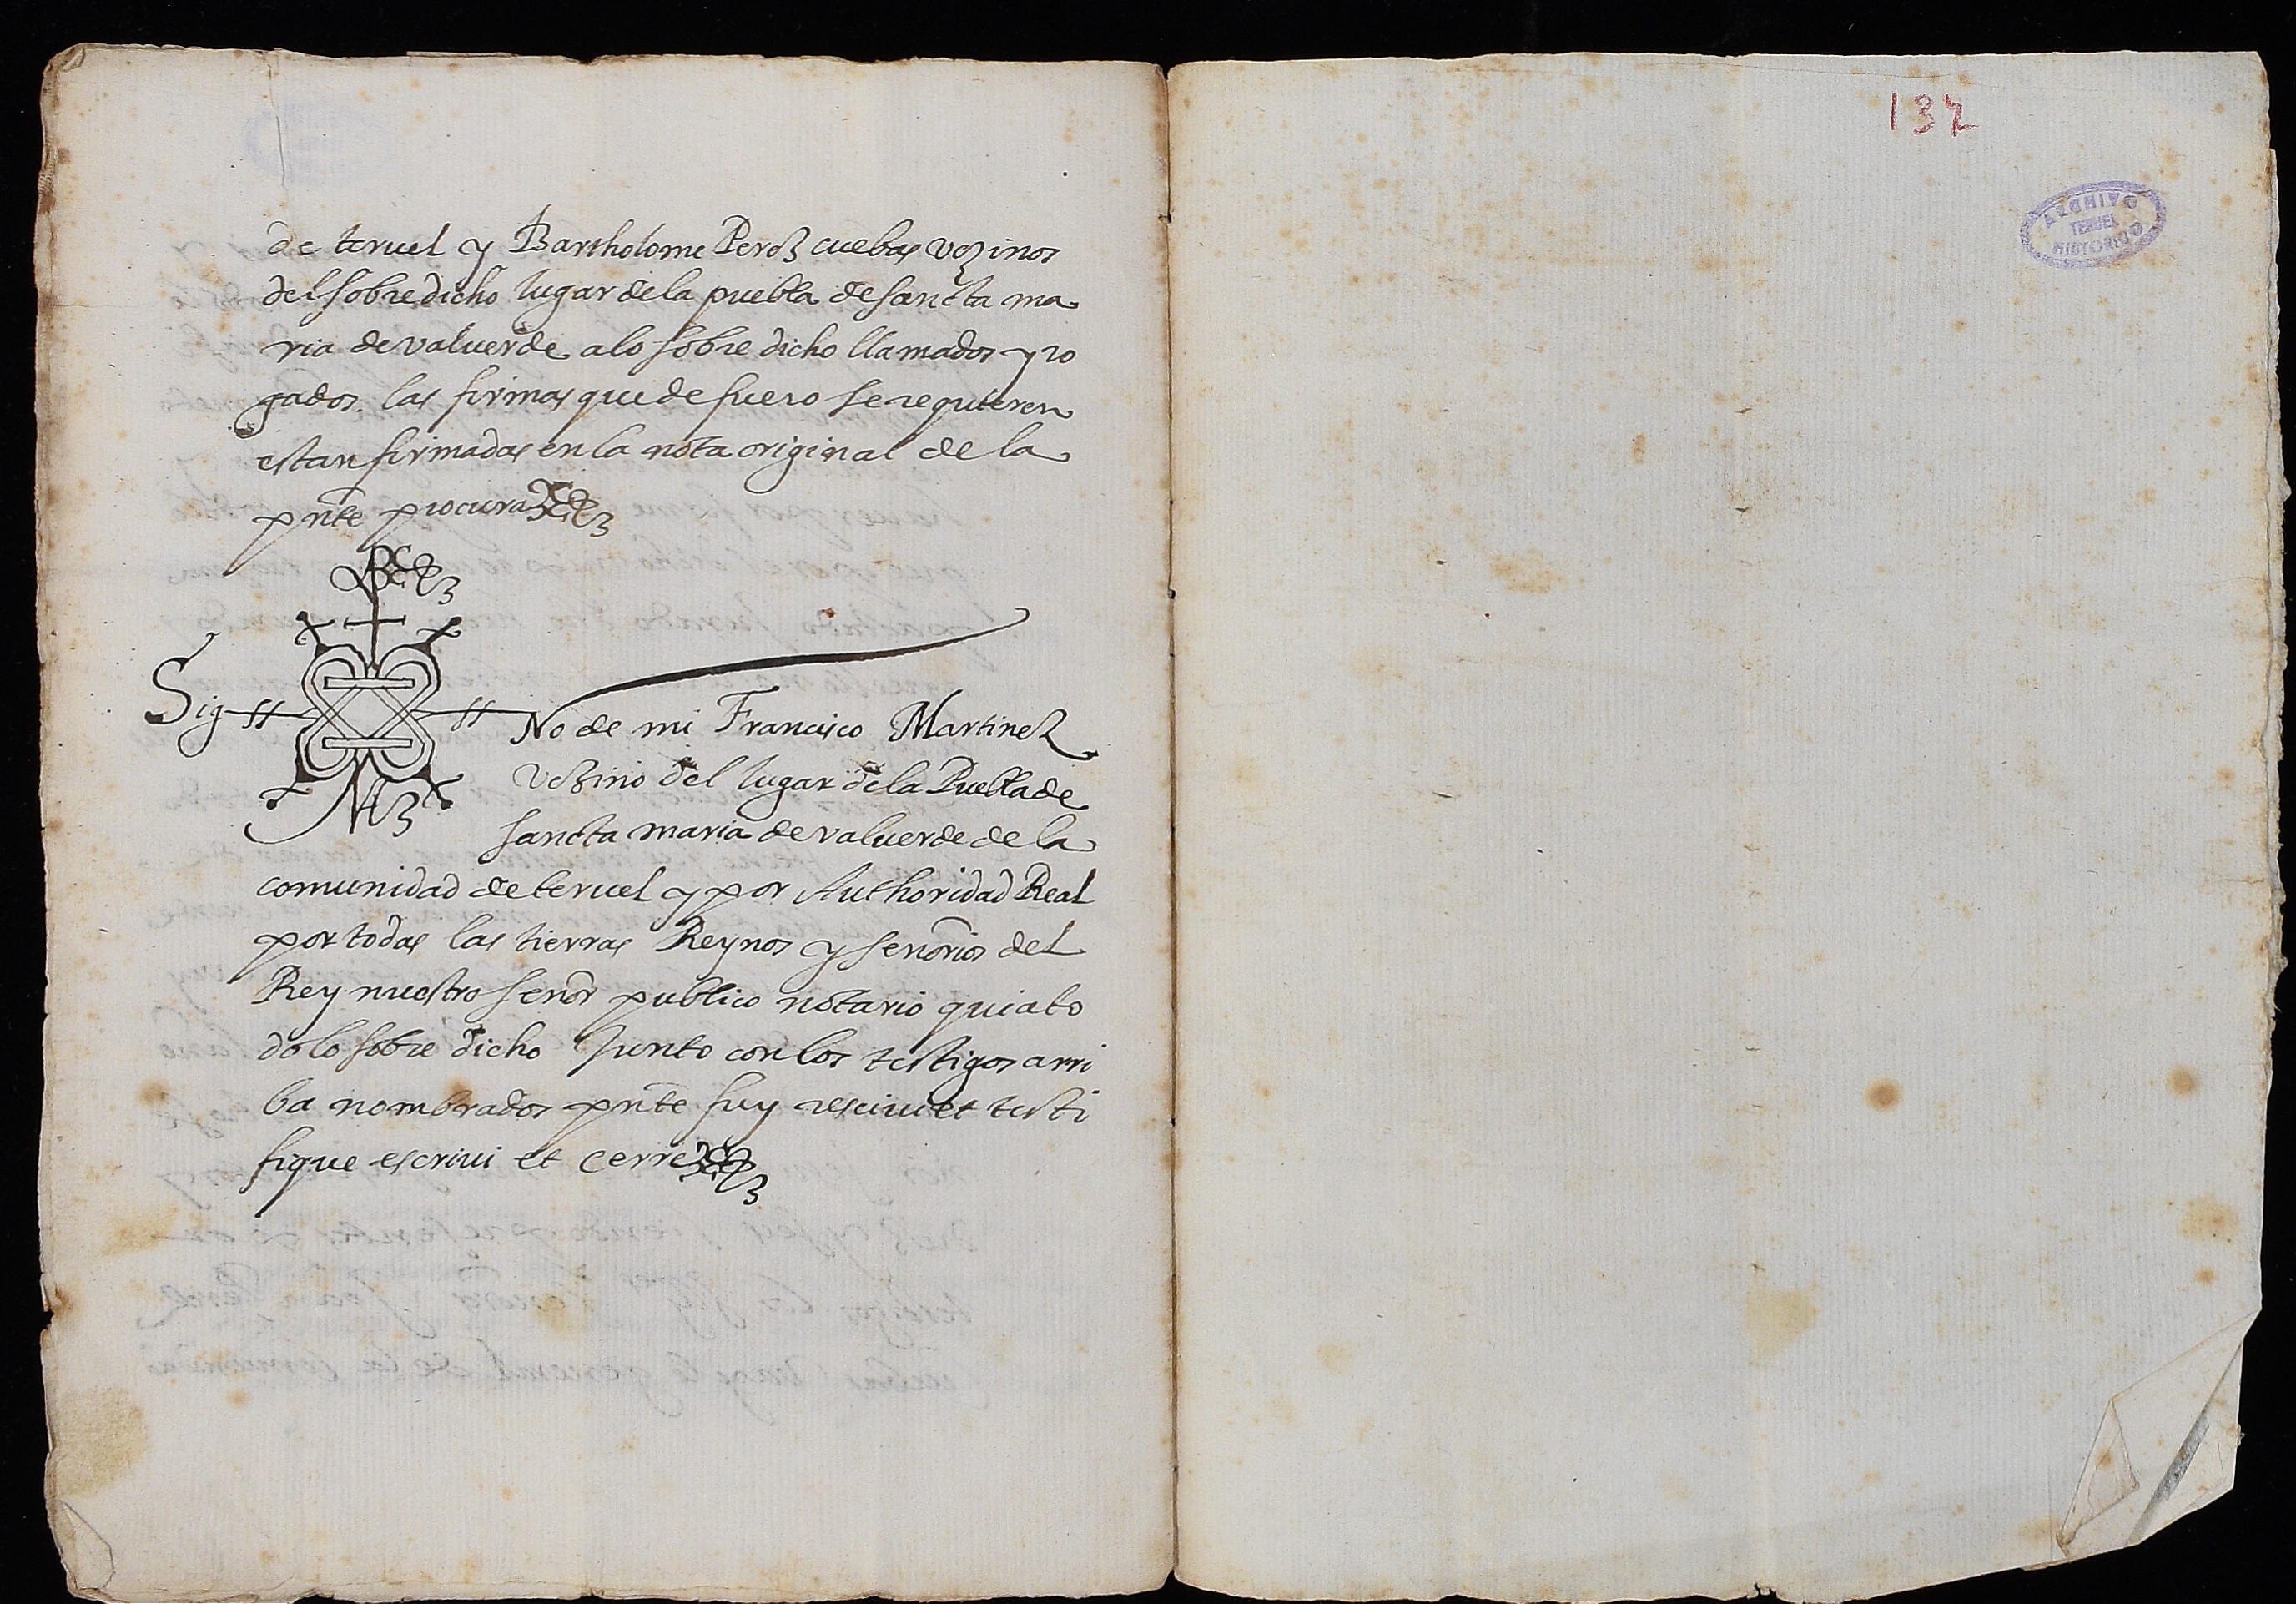 de teruel y Bartholome Perez cuebas vezinos
del sobredicho lugar de la puebla de sancta ma
ria de valuerde a lo sobre dicho llamados y ro
gados. las firmas que de fuero se requieren
estan firmadas en la nota original de la
pnte procura
Sig No de mi Francisco Martinez
vezino del lugar de la Puebla de
sancta maria de valuerde de la
comunidad de teruel y por Authoridad Real
por todas las tierras Reynos y senorios del
Rey nuestro senor publico notario qui a to
do lo sobre dicho Junto con los testigos arri
ba nombrados pnte fuy resciui et testi
fique escriui et cerre
132
ARCHIVO
TERUEL
HISTORICO